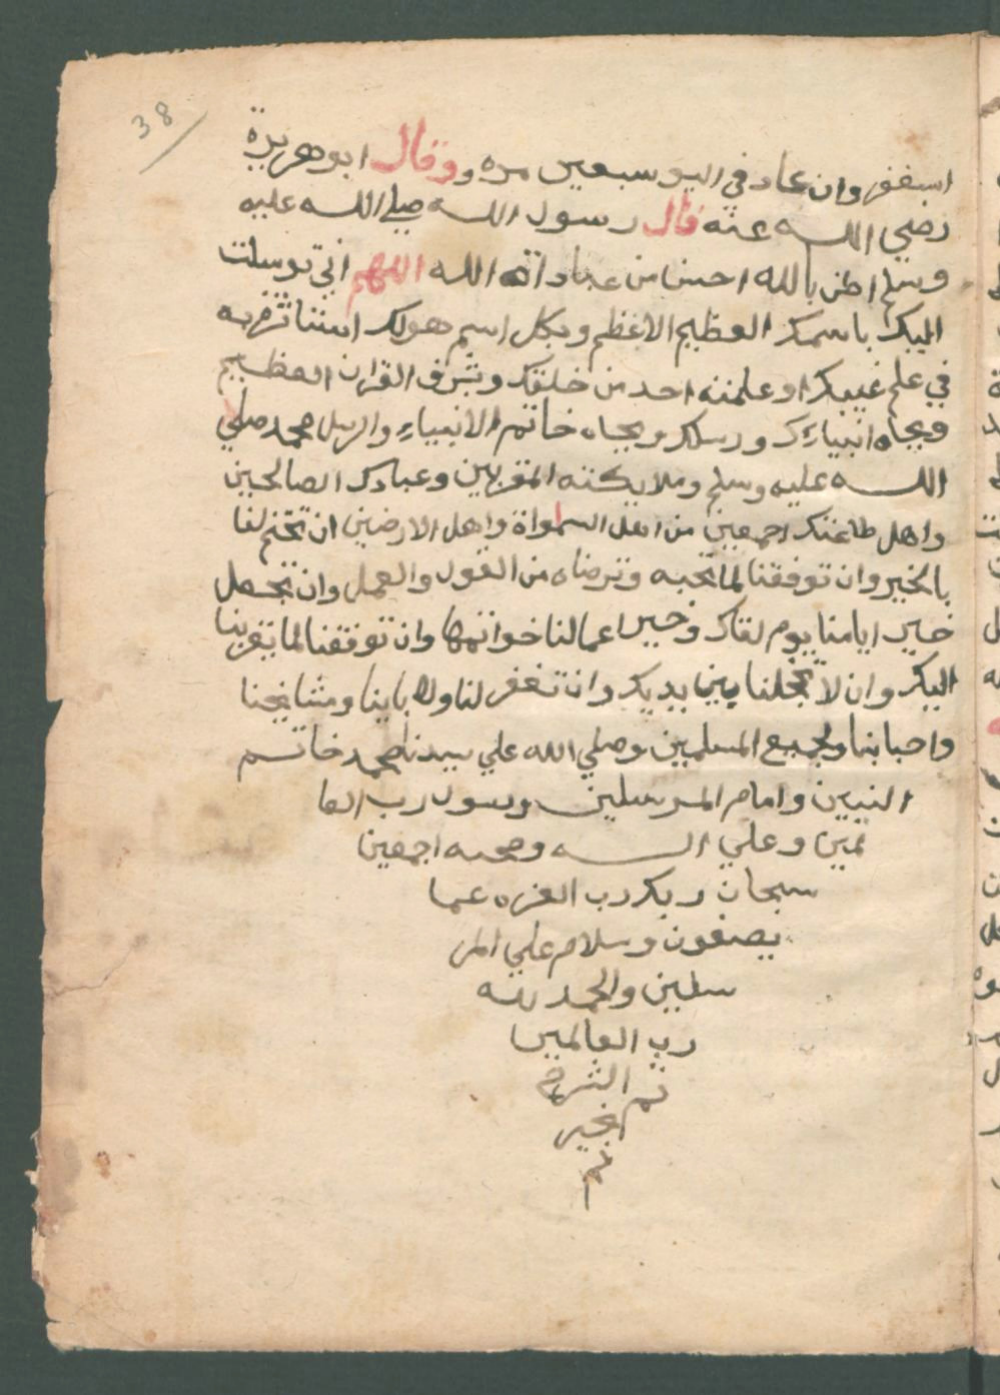 38
استغفر وان عاد في اليوم سبعين مره و وقال ابو هريرة
رضي الله عنه قال رسول الله صلي الله عليه
وسلم الظن بالله احسن من عبادة الله اللهم اني توسلت
اليك باسمك العظيم الاعظم وبكل اسم هو لك استاثرت به
في علم غيبك او علمته احد من خلقك وبشرف القران العظيم
وبجاه انبياءك ورسلك وبجاه خاتم الانبياء والرسل محمد صلي
الله عليه وسلم وملايكته المقربين وعبادك الصالحين
واهل طاعتك اجمعين من اهل السمواة واهل الارضين ان تختم لنا
بالخير وان توفقنا لما تحبه وترضاه من القول والعمل وان تجعل
خير ايامنا يوم لقاك وخير اعمالنا خواتمها وان توفقنا لما يقربنا
اليك وان لا تخجلنا بين يديك وان تغفر لنا ولابائنا ومشايخنا
واحبابنا ولجميع المسلمين وصلي الله علي سيدنا محمد خاتم
النبيين وامام المرسلين ورسول رب العا
لمين وعلي اله وصحبه اجمعين
سبحان ربك رب العزه عما
يصفون وسلام علي المر
سلين والحمد لله
رب العالمين
تم الشرح
بخير
تم